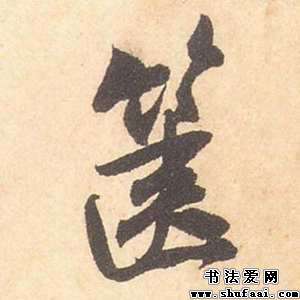 箧
书法爱网
www.shufaai.com